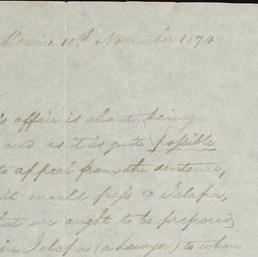 Mexico 10th November 1874
's affair is about being
and as it is quite possible
to appeal from the sentence,
it would pass to Jalapa,
that we ought to be prepared
in Jalapa (a Lawyer) to whom